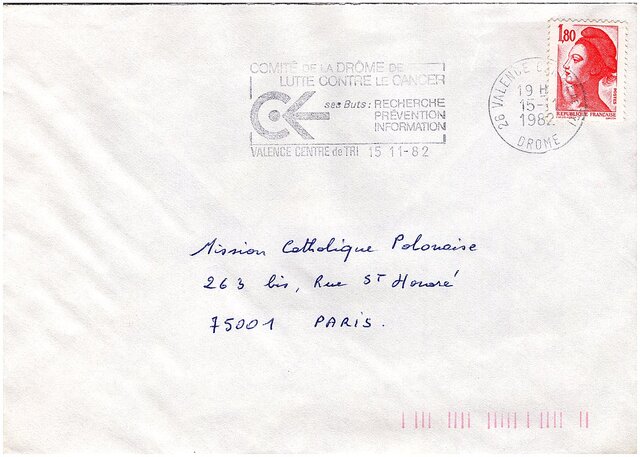 COMITÉ DE LA DRÔME DE
LUTTE CONTRE LE CANCER
ses Buts : RECHERCHE
PRÉVENTION
INFORMATION
VALENCE CENTRE de TRI 15 11-82
1,80
REPUBLIQUE FRANÇAISE
26 VALENCE
19 H
15-11
1982
DROME
Mission Catholique Polonaise
263 bis, Rue St Honoré
75001 PARIS.